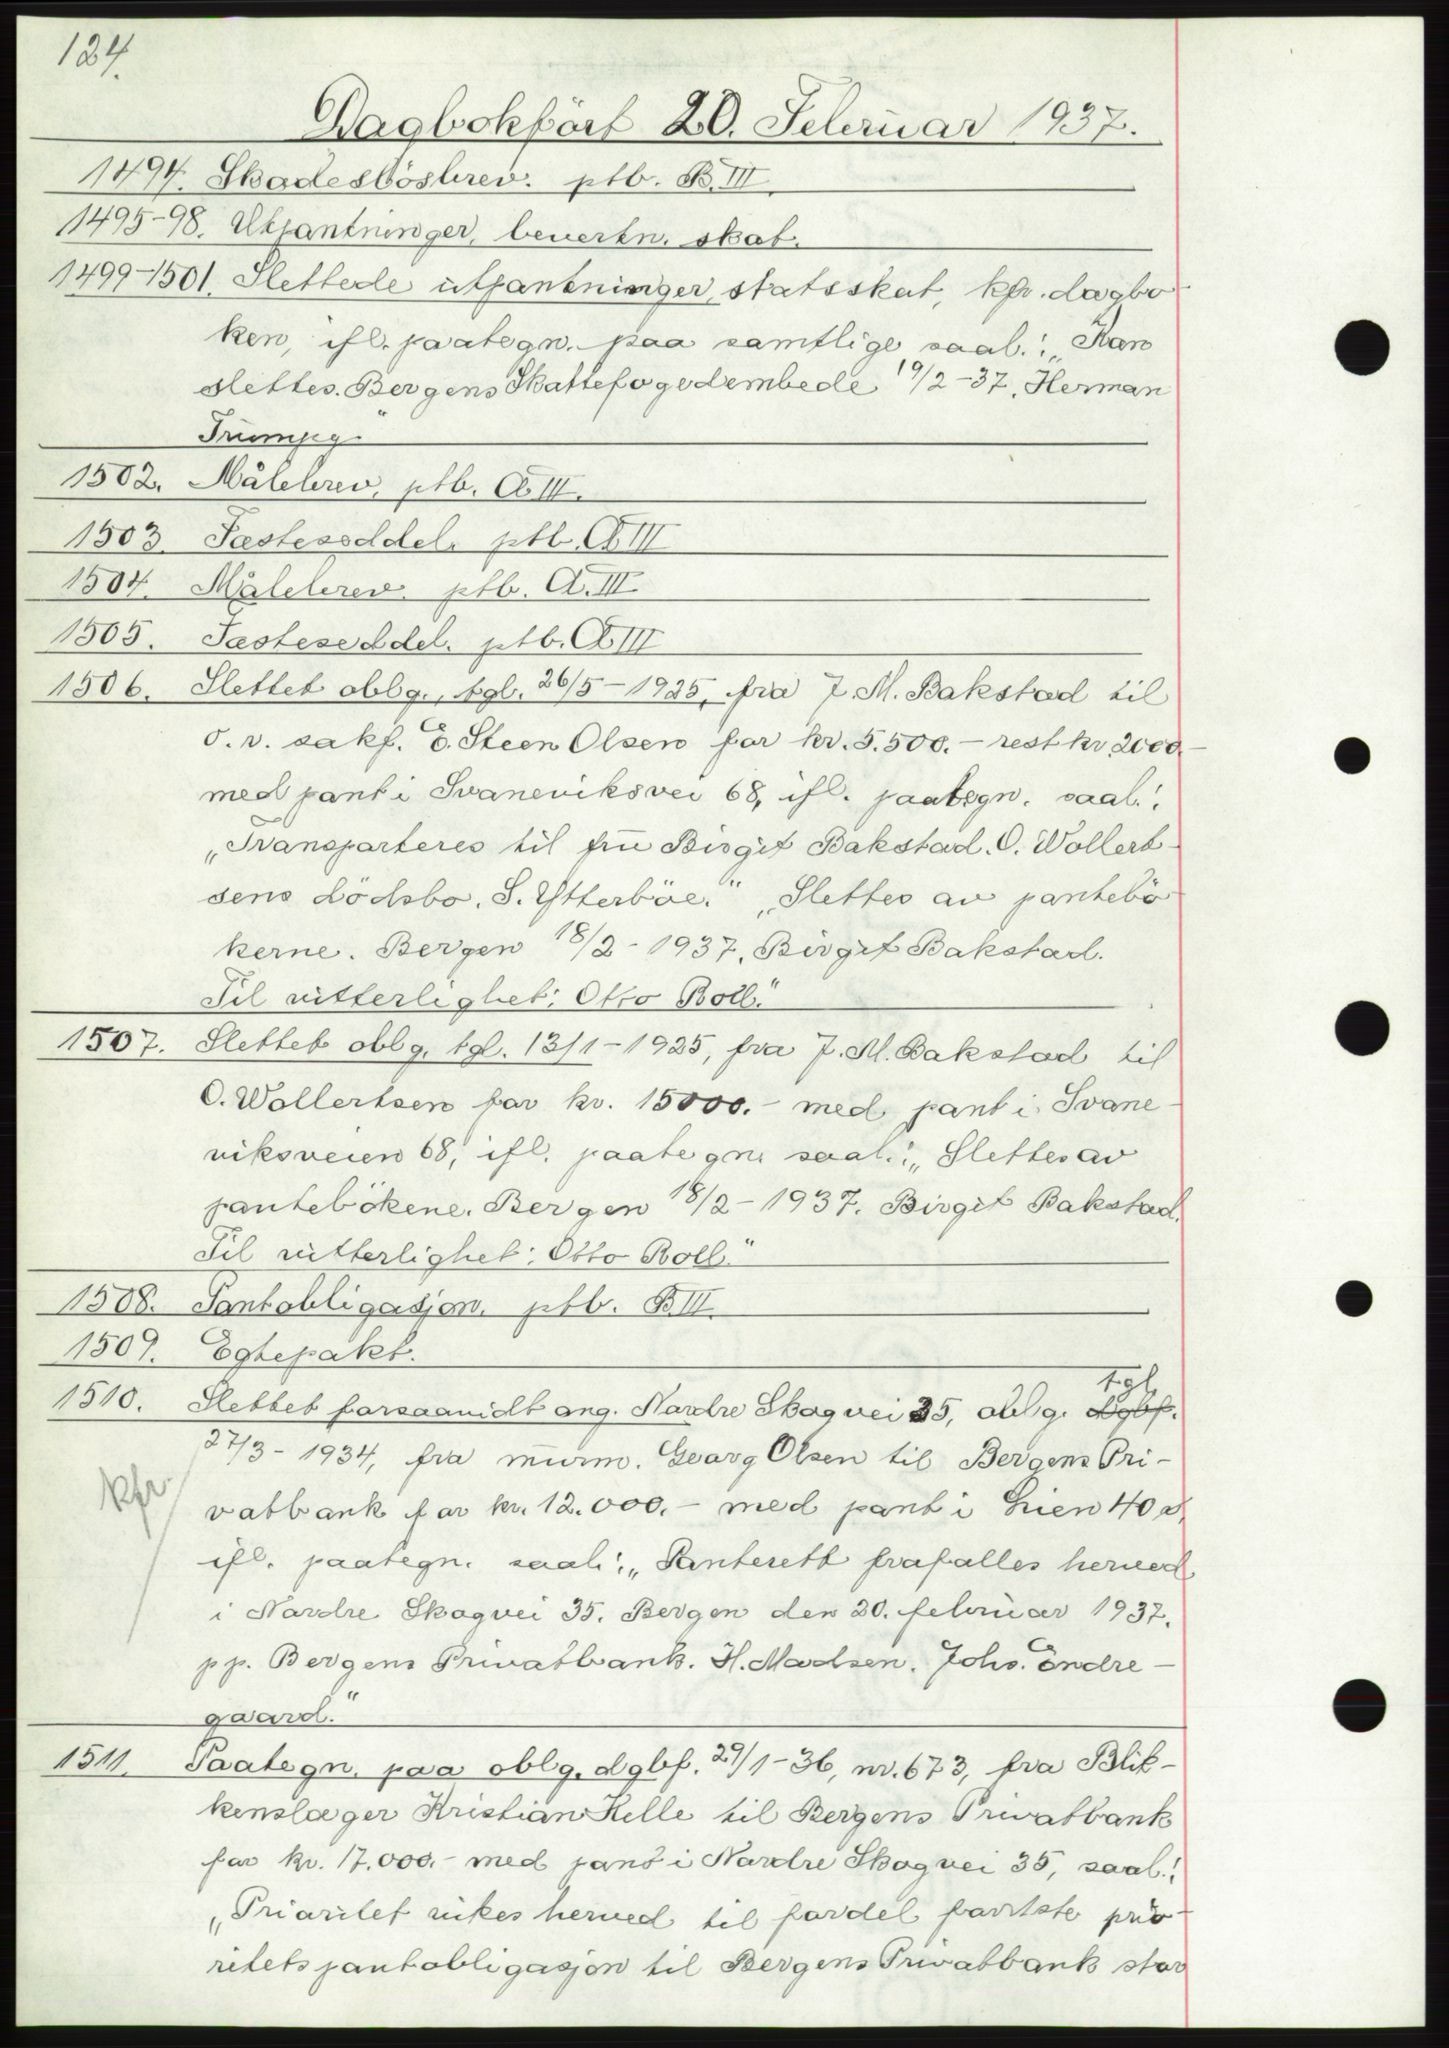 124.
Dagbokført 20. Februar 1937.
1494. Skadesløsbrev. ptb. B. III.
1495-98. Utpantninger, bevertn. skat.
1499-1501. Slettede utpantninger, statsskat, kfr. dagbo
ken, ifl. paategn. paa samtlige saal.: „Kan
slettes. Bergens Skattefogedembede 19/2-37. Herman
Trumpy."
1502. Målebrev, ptb. A III.
1503. Festeseddel. ptb. A III
1504. Målebrev. ptb. A. III
1505. Festeseddel. ptb. A III
1506. Slettet oblg., tgl. 26/5-1925, fra J. M. Bakstad til
o. r. sakf. E. Steen Olsen for kr. 5.500.- rest kr 2000.-
med pant i Svaneviksvei 68, ifl. paategn. saal.:
„Transporteres til fru Birgit Bakstad. O. Wollert-
sens dödsbo. S. Ytterböe." „Slettes av pantebö
kerne. Bergen 18/2-1937. Birgit Bakstad.
Til vitterlighet: Otto Roll."
1507. Slettet oblg. tgl. 13/1-1925, fra J. M. Bakstad til
O. Wollertsen for kr. 15000.- med pant i Svane-
viksveien 68, ifl. paategn. saal.: „Slettes av
pantebökene. Bergen 18/2-1937. Birgit Bakstad.
Til vitterlighet: Otto Roll."
1508. Pantobligasjon. ptb. B III.
1509. Egtepakt.
1510. Slettet forsaavidt ang. Nordre Skogvei 35, oblg. dgbf. tgl.
27/3-1934, fra murm. Georg Olsen til Bergens Pri-
kfr
vatbank for kr. 12.000.- med pant i Lien 40 a,
ifl. paategn. saal.: „Panterett frafalles herved
i Nordre Skogvei 35. Bergen den 20. februar 1937.
pp. Bergens Privatbank. H. Madsen. Johs. Endre-
gaard."
1511. Paategn. paa oblg. dgbf. 29/1-36, nr. 673, fra Blik-
kenslager Kristian Helle til Bergens Privatbank
for kr. 17.000.- med pant i Nordre Skogvei 35, saal.:
„Prioritet vikes herved til fordel for
prio-
ritets pantobligasjon til Bergens Privatbank stor